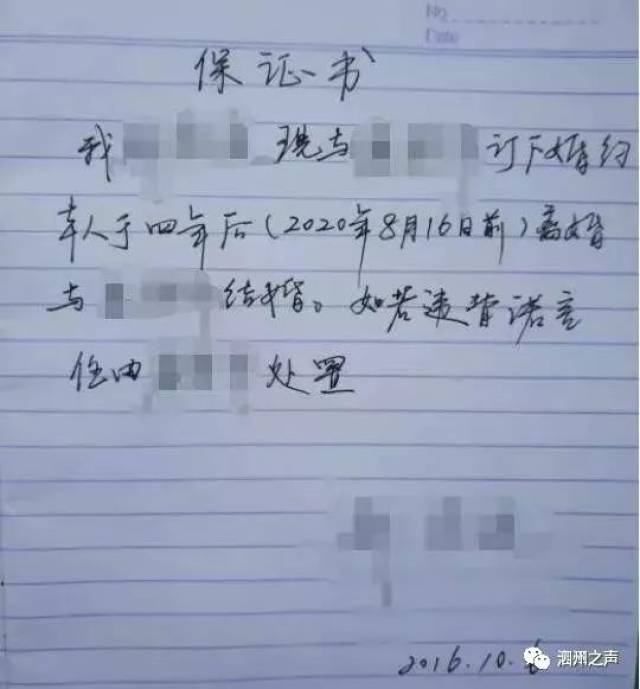 No
Date
保证书
我 现与 订下婚约
本人于四年后(2020年8月16日前)离婚
与 结婚。如若违背诺言
任由 处置
2016.10.6
泗州之声